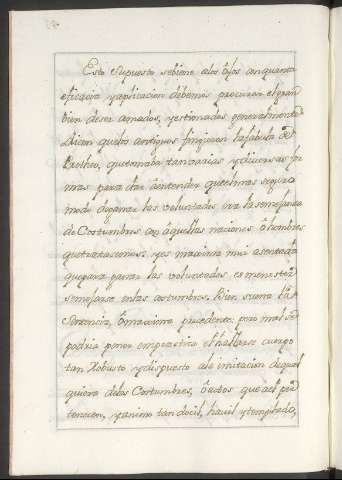 Esto supuesto sebiene alos ojos con quanta
eficacia yaplicacion debemos procurar el gran
bien deser amados, yestimados generalmente
Dicen quelos antiguos fingieron lafabula de
Protheo, quetomaba tanvarias ydiversas for
mas para dar aentender quelmas seguro
modo deganar las voluntades era lasemejanza
de Costumbres con aquellas naciones ò hombres
quetratasemos; yes maxima mui asentada
quepara ganar las voluntades, es menester
semejarse enlas costumbres. Bien suena la
Sentencia, ò maxima precedente; pero mal se
podria poner empractica el hallarse cuerpo
tan Robusto ydispuesto ala imitacion dequal
quiera delas Costumbres, ò actos que ael per
tenecen, yanimo tan docil, havil ytemplado,